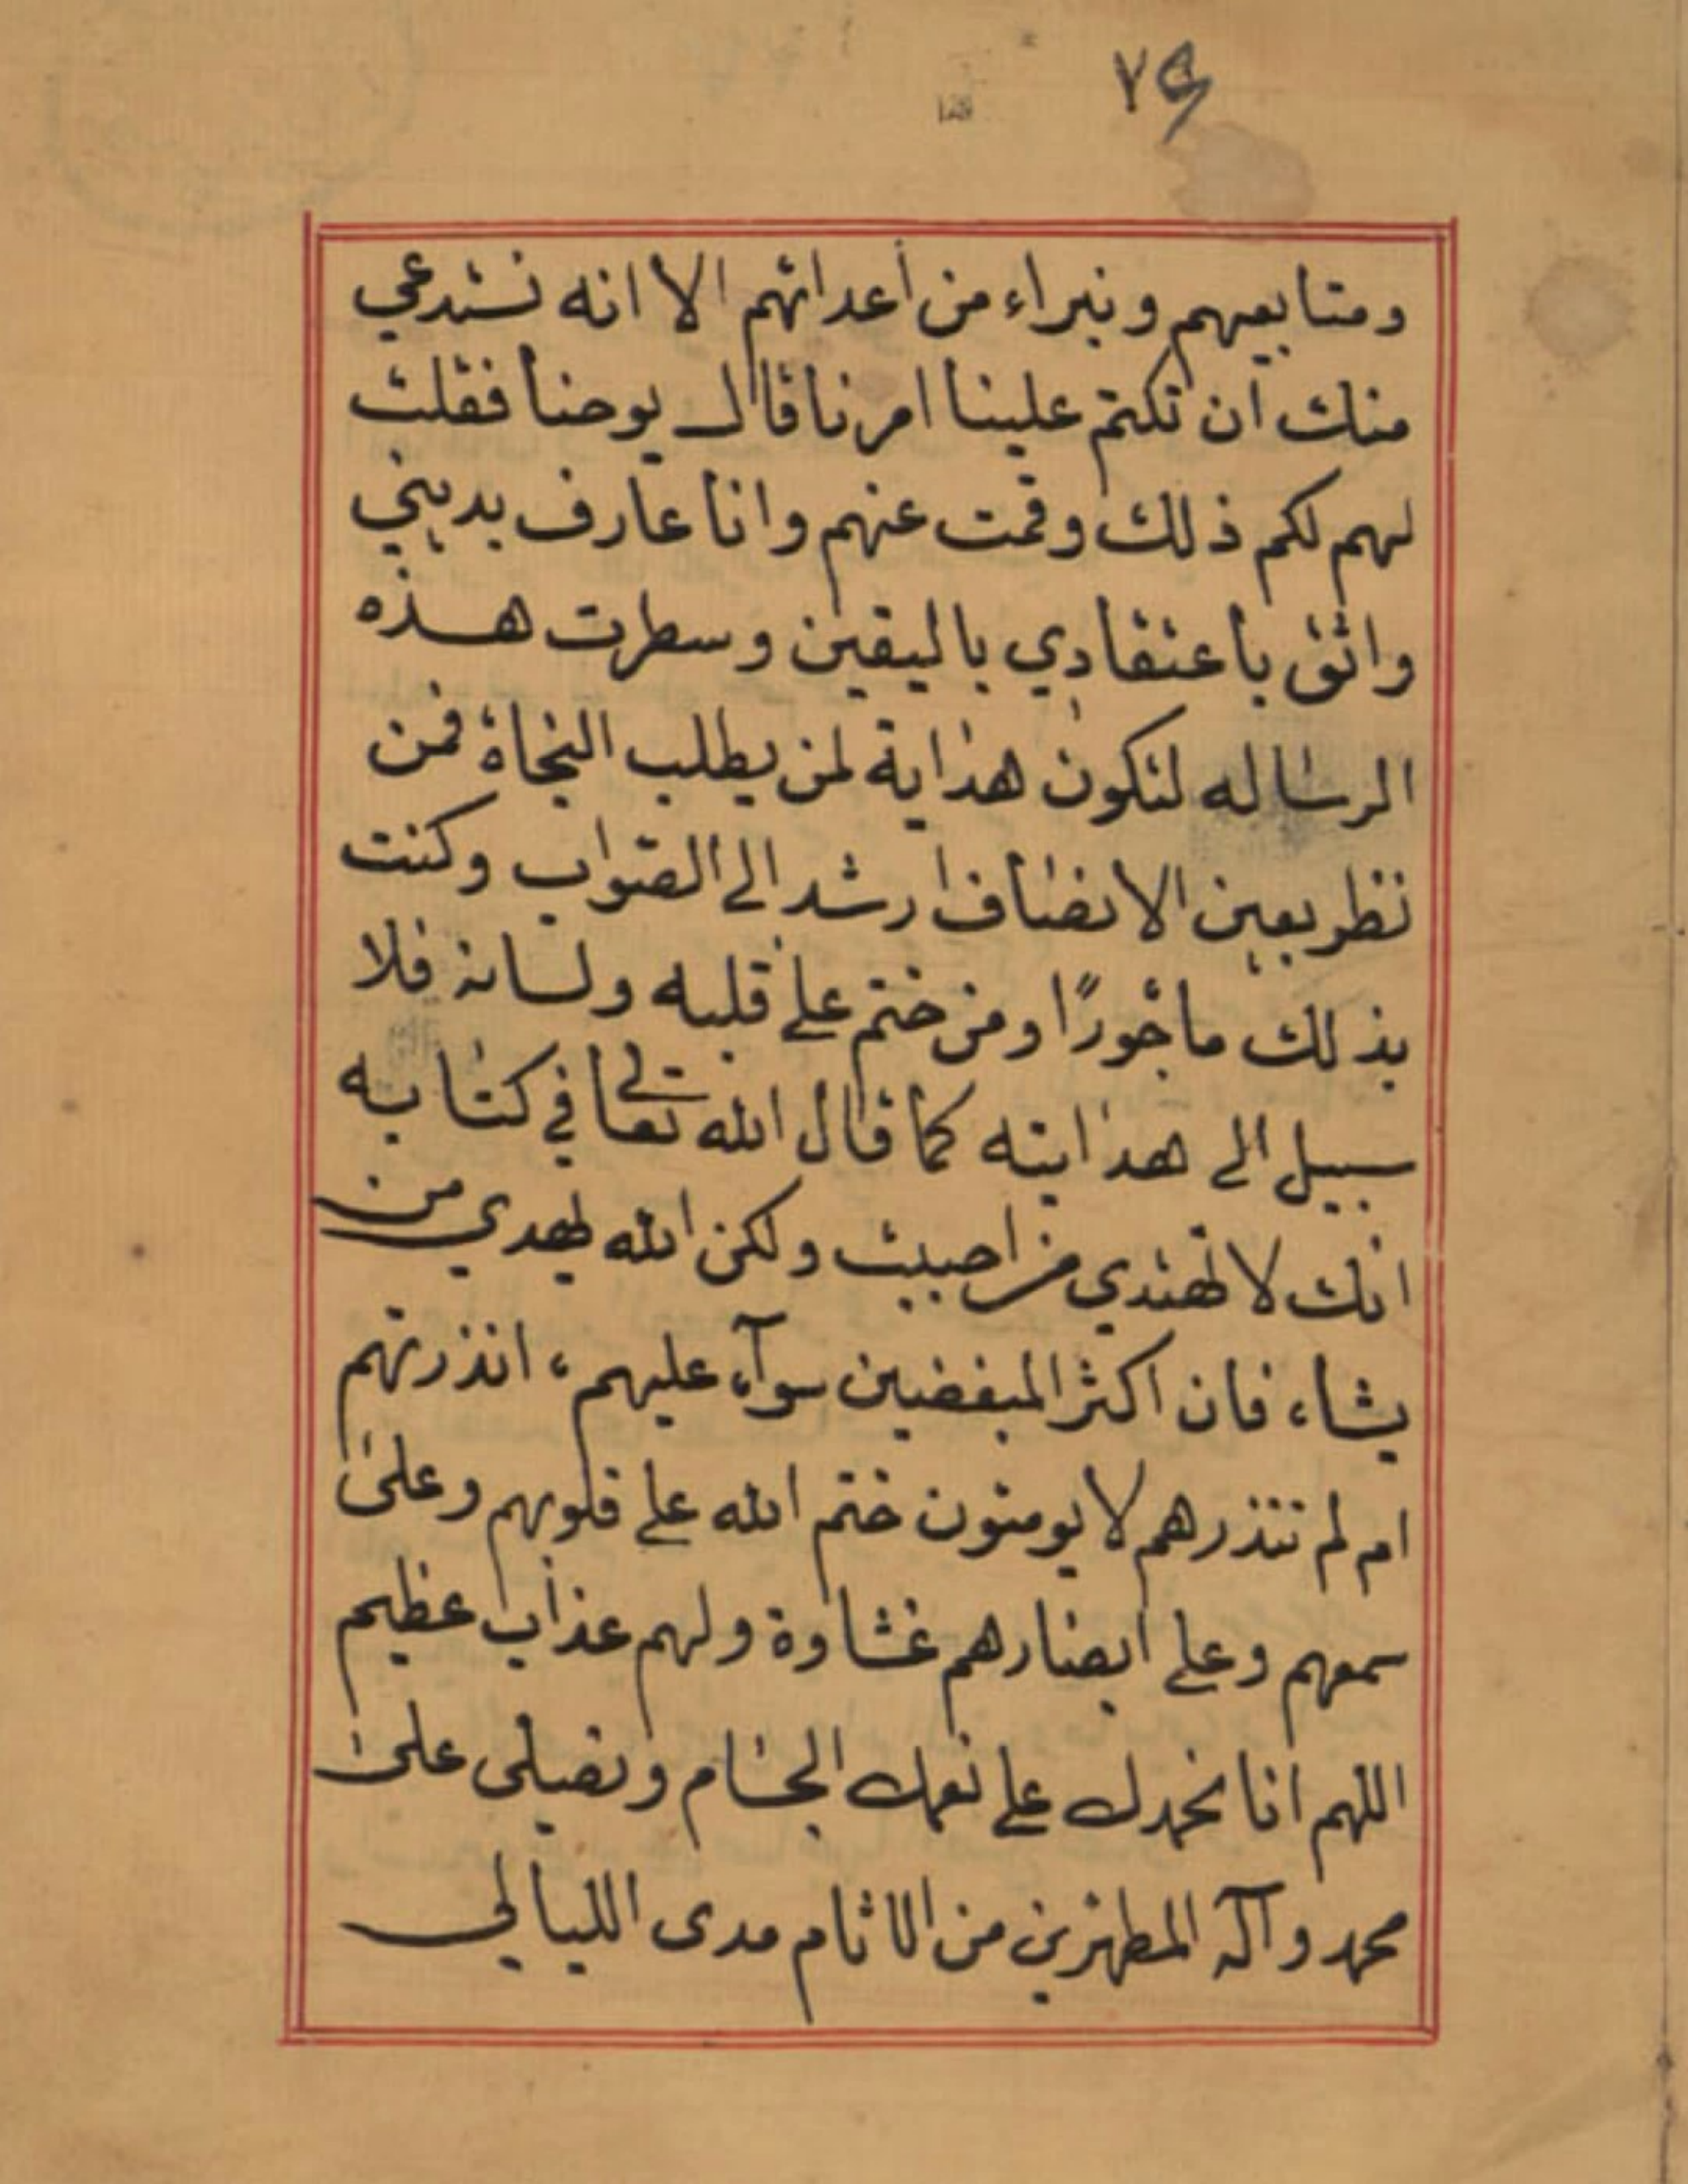 ومتابعيهم ونبراء من أعدائهم الا انه نستدعي
منك ان تكتم علينا امرنا قال يوحنا فقلت
لهم لكم ذلك وقمت عنهم وانا عارف بديني
واثق باعتقادي باليقين وسطرت هذه
الرساله لتكون هداية لمن يطلب النجاة فمن
نظر بعين الانصاف ارشد الى الصواب وكنت
بذلك مأجورًا ومن ختم على قلبه ولسانه فلا
سبيل الى هدايته كما قال الله تعالى في كتابه
انك لا تهتدي من احببت ولكن الله يهدي من
يشاء فان اكثر المبغضين سوآء عليهم ءانذرتهم
ام لم تنذرهم لا يومنون ختم الله على قلوبهم وعلى
سمعهم وعلى ابصارهم غشاوة ولهم عذاب عظيم
اللهم انا نحمدك على نعمك الجسام ونصلى على
محمد وآله المطهرين من الاثام مدى الليالي